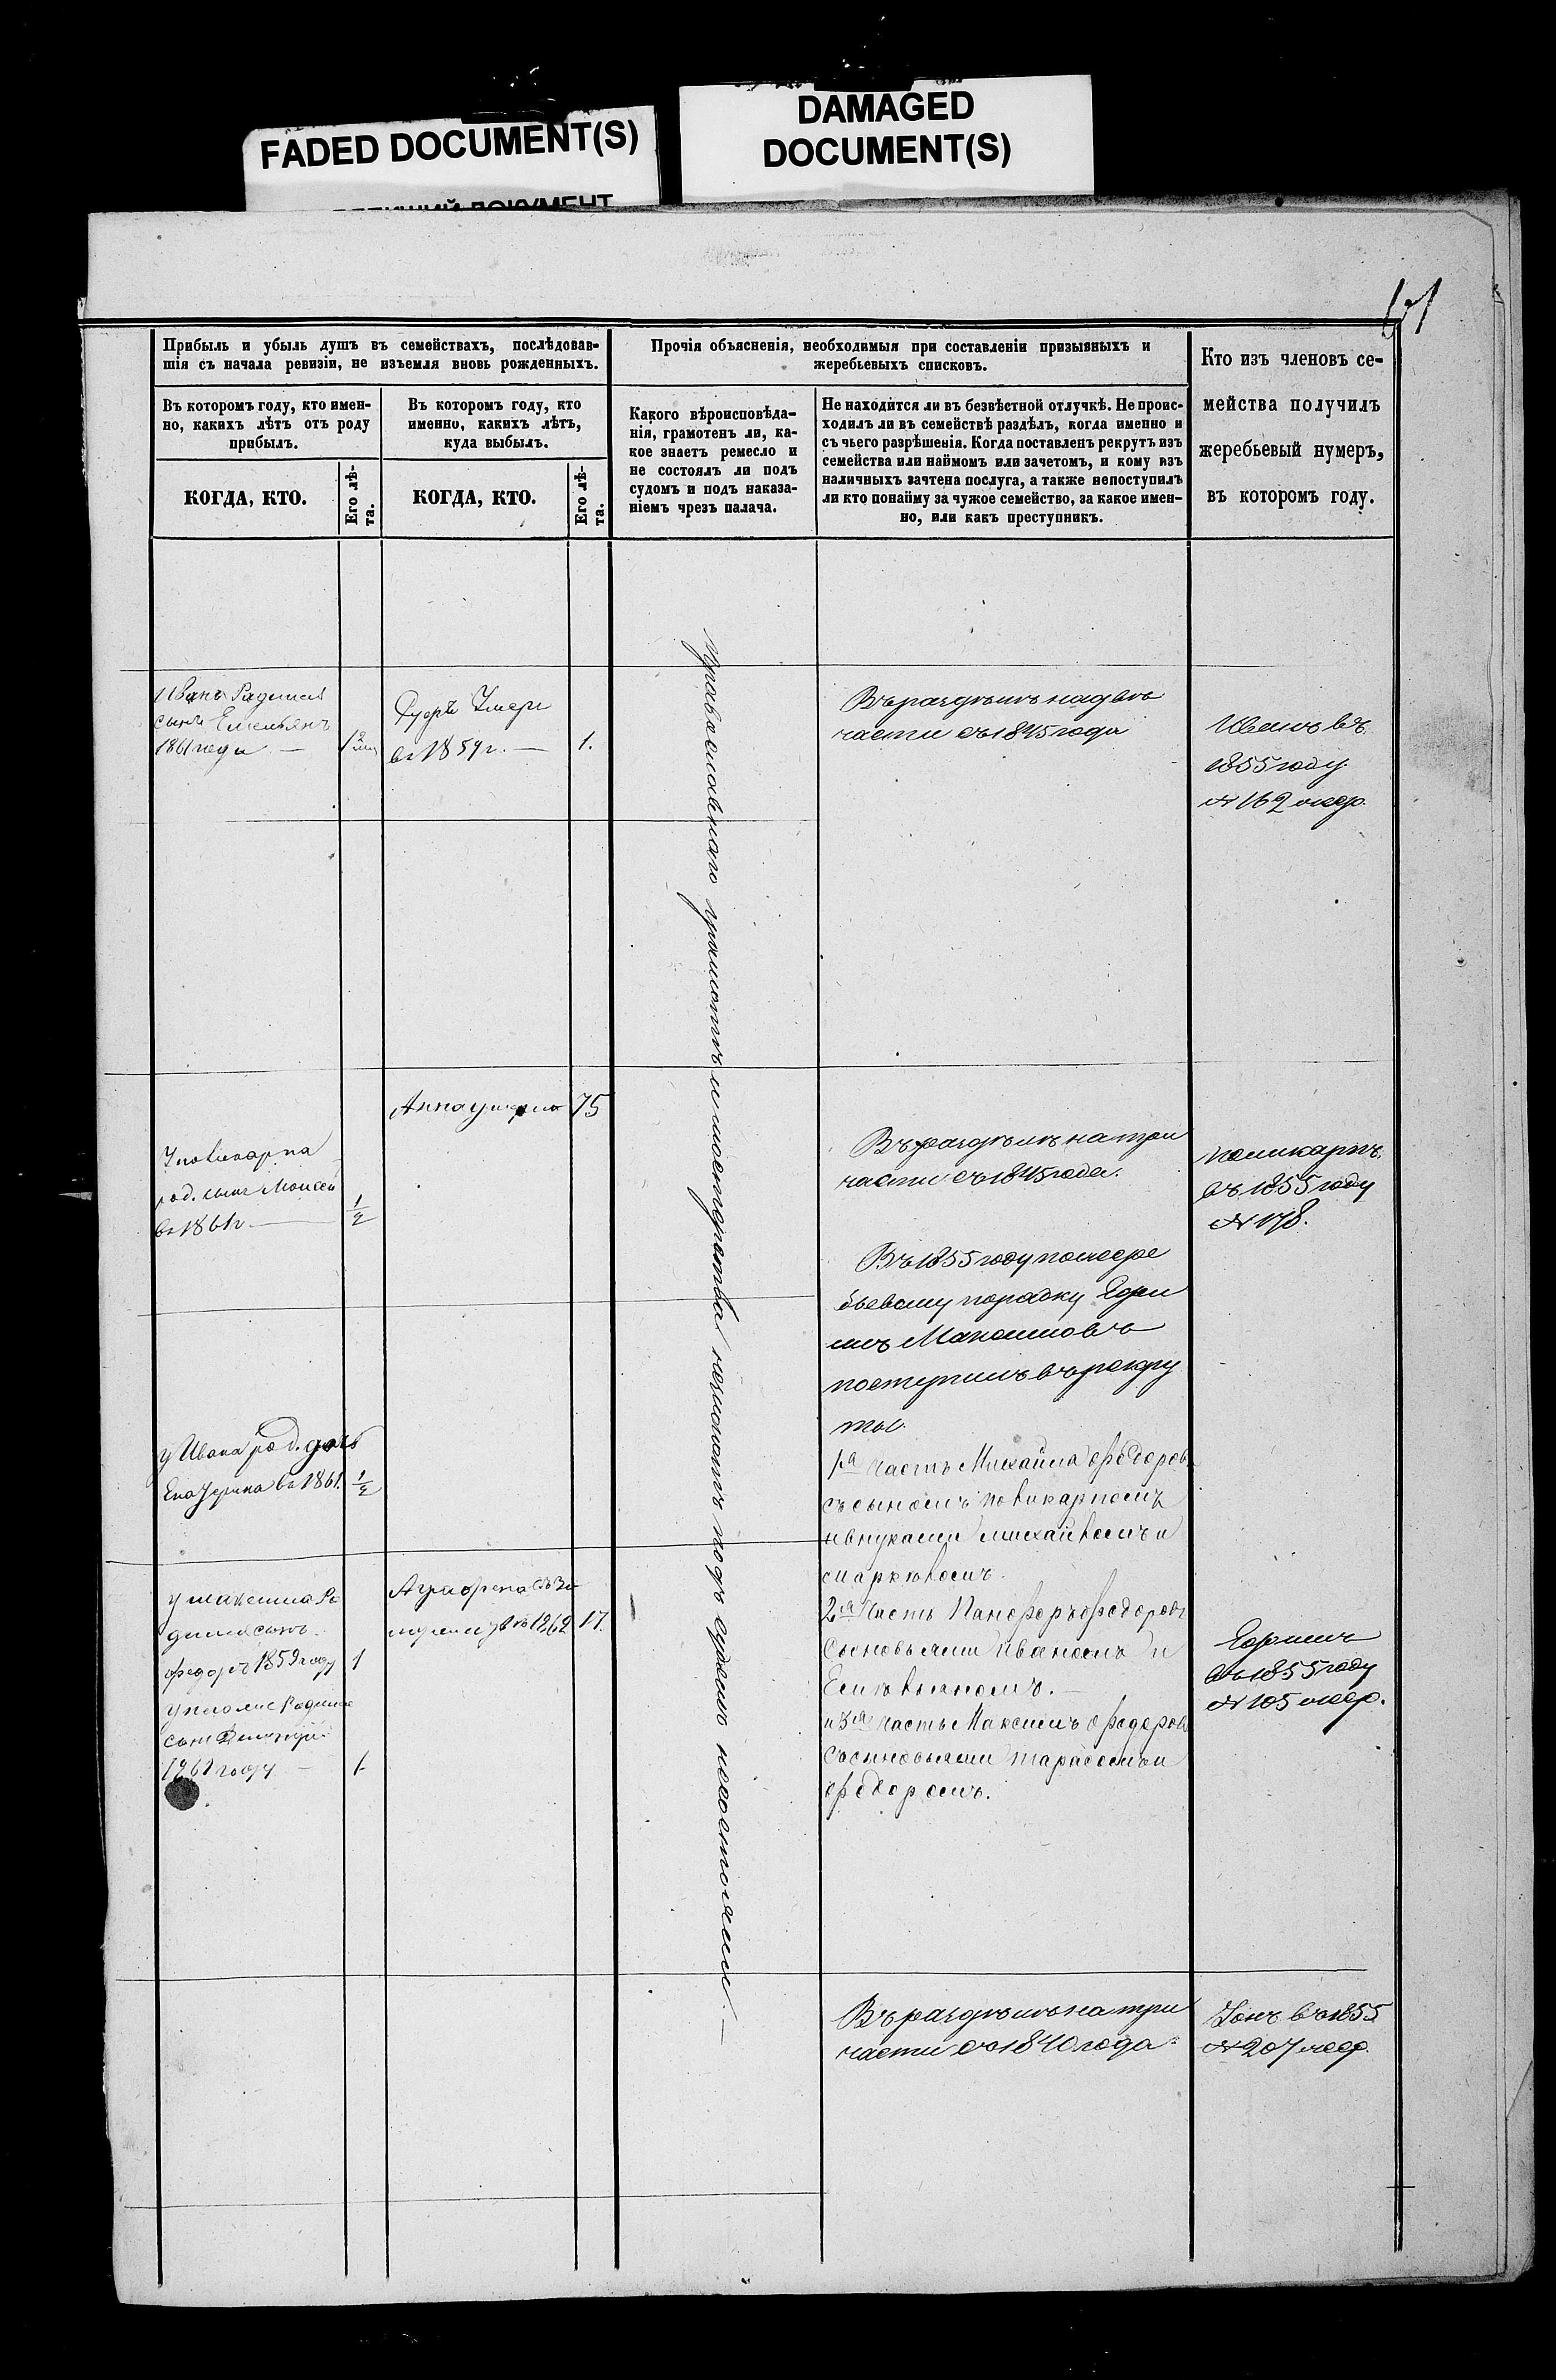 FADED DOCUMENT(S)
DAMAGED
DOCUMENT(S)
ДОКУМЕНТ
Прибыль и убыль душъ въ семействахъ, послѣдовав-
шія съ начала ревизіи, не изъемля вновь рожденныхъ.
Въ которомъ году, кто имен-
но, какихъ лѣтъ отъ роду
прибылъ.
Въ которомъ году, кто
именно, какихъ лѣтъ,
куда выбылъ.
КОГДА, КТО.
Его лѣ-
та.
КОГДА, КТО.
Его лѣ-
та.
Прочія объясненія, необходимыя при составленіи призывныхъ и
жеребьевыхъ списковъ.
Какого вѣроисповѣда-
нія, грамотенъ ли, ка-
кое знаетъ ремесло и
не состоялъ ли подъ
судомъ и подъ наказа-
ніемъ чрезъ палача.
Не находится ли въ безвѣстной отлучкѣ. Не проис-
ходилъ ли въ семействѣ раздѣлъ, когда именно и
съ чьего разрѣшенія. Когда поставленъ рекрутъ изъ
семейства или наймомъ или зачетомъ, и кому изъ
наличныхъ зачтена послуга, а также непоступилъ
ли кто понайму за чужое семейство, за какое имен-
но, или какъ преступникъ.
Кто изъ членовъ се-
мейства получилъ
жеребьевый нумеръ,
въ которомъ году.
сынъ Емельянъ
1861 года
въ 1859 г. — 1.
Въ раздѣлѣ на двѣ
части съ 1845 года
Иванъ въ
1855 году
№ 162 жер.
Православнаго грамотѣ и мастерства незнаютъ подъ судомъ несостояли —
Анна умерла 75
род. сынъ Моисей
въ 1861 г. — 1/2
Въ раздѣлѣ на три
части съ 1845 года.
Поликарпъ
въ 1855 году
№ 178.
Въ 1855 году по жере
бьевому порядку Ефи
мъ Максимовъ
поступилъ въ рекру
ты.
у Ивана род. дочь
Екатерина въ 1861. 1/2
1я часть Михайла Федоровъ
съ сыномъ Поликарпомъ
и внуками Михайломъ и
2я Часть Панферъ Федоровъ
Сыновьями Иваномъ и
Емельяномъ. —
и 3я часть Максимъ Федоровъ
съ сыновьями Тарасомъ и
Федоромъ.
у Максима Ро
дился сынъ
Федоръ 1859 году 1
сынъ Дмитрій
1861 году — 1
Аграфена
1862 17.
Ефимъ
въ 1855 году
№ 105 жер.
Въ раздѣлѣ на три
части съ 1840 года
въ 1855
№ 207 жер.